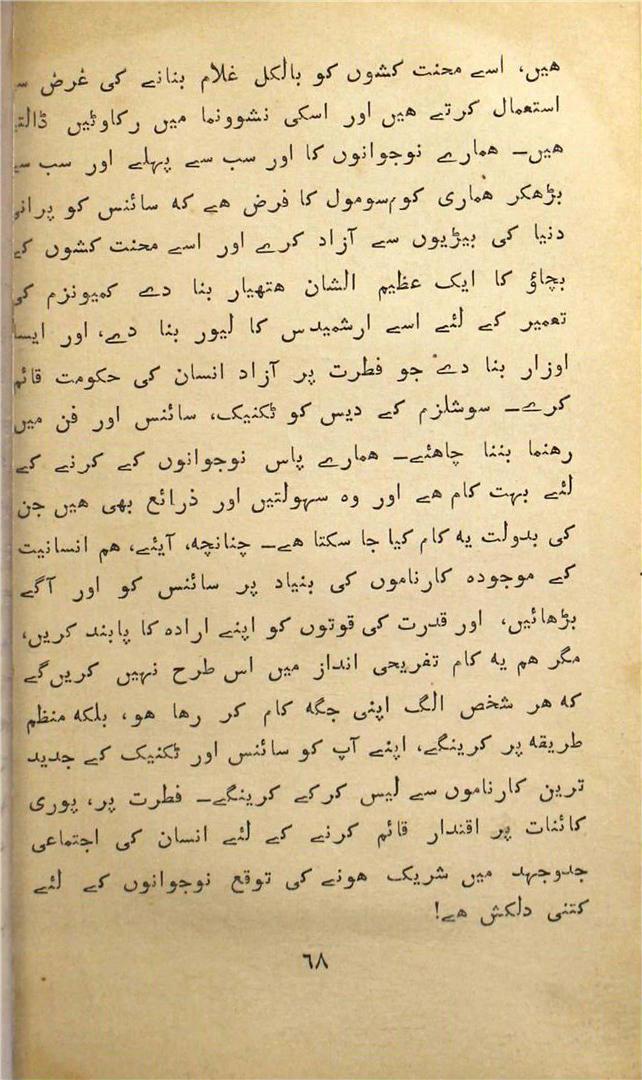 هیں، اسے محنت کشوں کو بالکل غلام بنانے کی غرض
استعمال کرتے هیں اور اسکی نشوونما میں رکاوٹیں
هیں۔ همارے نوجوانوں کا اور سب سے پہلے اور سب
بڑھکر هماری کوم‌سومول کا فرض هے که سائنس کو پرانی
دنیا کی بیڑیوں سے آزاد کرے اور اسے محنت کشوں کے
بچاؤ کا ایک عظیم الشان هتھیار بنا دے کمیونزم کی
تعمیر کے لئے اسے ارشمیدس کا لیور بنا دے، اور ایسا
اوزار بنا دے جو فطرت پر آزاد انسان کی حکومت قائم
کرے۔ سوشلزم کے دیس کو ٹکنیک، سائنس اور فن میں
رهنما بننا چاهئے۔ همارے پاس نوجوانوں کے کرنے کے
لئے بہت کام هے اور وه سہولتیں اور ذرائع بھی هیں جن
کی بدولت یه کام کیا جا سکتا هے۔ چنانچه، آیئے، هم انسانیت
کے موجوده کارناموں کی بنیاد پر سائنس کو اور آگے
بڑھائیں، اور قدرت کی قوتوں کو اپنے اراده کا پابند کریں،
مگر هم یه کام تفریحی انداز میں اس طرح نہیں کریں‌گے
که هر شخص الگ اپنی جگه کام کر رها هو، بلکه منظم
طریقه پر کرینگے، اپنے آپ کو سائنس اور ٹکنیک کے جدید
ترین کارناموں سے لیس کرکے کرینگے۔ فطرت پر، پوری
کائنات پر اقتدار قائم کرنے کے لئے انسان کی اجتماعی
جدوجہد میں شریک هونے کی توقع نوجوانوں کے لئے
کتنی دلکش هے!
٦٨